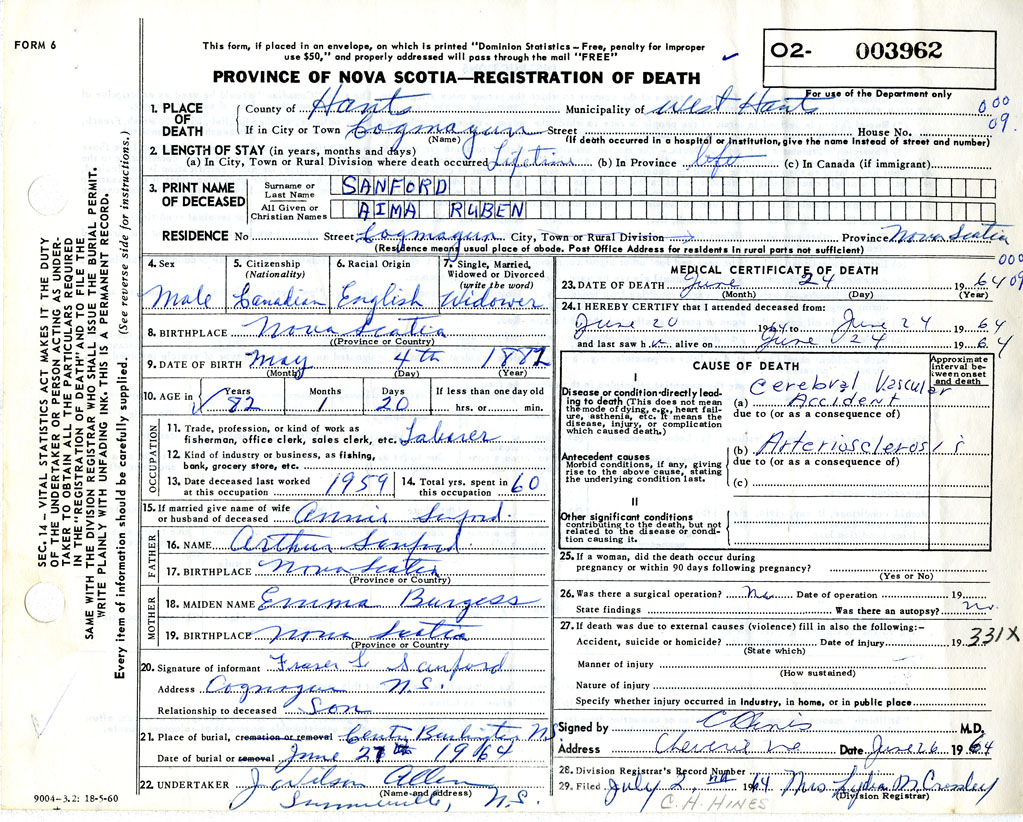 FORM 6
This form, if placed in an envelope, on which is printed "Dominion Statistics – Free, penalty for improper
use $50," and properly addressed will pass through the mail "FREE"
O2- 003962
For use of the Department only
PROVINCE OF NOVA SCOTIA—REGISTRATION OF DEATH
000
09.
1. PLACE OF DEATH
County of Hants Municipality of West Hants
If in City or Town Cogmagun Street House No.
(Name) (If death occurred in a hospital or institution, give the name instead of street and number)
2. LENGTH OF STAY (in years, months and days)
(a) In City, Town or Rural Division where death occurred Lifetime (b) In Province life (c) In Canada (if immigrant)
3. PRINT NAME OF DECEASED
Surname or Last Name SANFORD
All Given or Christian Names AIMA RUBEN
RESIDENCE No Street Cogmagun City, Town or Rural Division Province Nova Scotia
(Residence means usual place of abode. Post Office Address for residents in rural parts not sufficient)
4. Sex Male
5. Citizenship (Nationality) Canadian
6. Racial Origin English
7. Single, Married, Widowed or Divorced (write the word) Widower
8. BIRTHPLACE Nova Scotia
(Province or Country)
9. DATE OF BIRTH May 4th 1882
(Month) (Day) (Year)
10. AGE in Years 82 Months 1 Days 20 If less than one day old hrs. or min.
OCCUPATION
11. Trade, profession, or kind of work as
fisherman, office clerk, sales clerk, etc. Laborer
12. Kind of industry or business, as fishing,
bank, grocery store, etc.
13. Date deceased last worked at this occupation 1959 14. Total yrs. spent in this occupation 60
15. If married give name of wife or husband of deceased Annie Sanford.
FATHER
16. NAME Arthur Sanford.
17. BIRTHPLACE Nova Scotia
(Province or Country)
MOTHER
18. MAIDEN NAME Emma Burgess
19. BIRTHPLACE Nova Scotia
(Province or Country)
20. Signature of informant Fraser L Sanford
Address Cogmagun N.S.
Relationship to deceased Son
21. Place of burial, cremation or removal Centre Burlington N.S.
Date of burial or removal June 27th 1964
22. UNDERTAKER J Wilson Allen
(Name and address)
Summerville, N.S.
9004–3.2: 18-5-60
MEDICAL CERTIFICATE OF DEATH
000
09
23. DATE OF DEATH June 24 1964
(Month) (Day) (Year)
24. I HEREBY CERTIFY that I attended deceased from:
June 20 1964 to June 24 1964
and last saw h im alive on June 24 1964
CAUSE OF DEATH
Approximate interval between onset and death
I
Disease or condition directly leading to death (This does not mean the mode of dying, e.g., heart failure, asthenia, etc. It means the disease, injury, or complication which caused death.)
(a) Cerebral Vascular Accident
due to (or as a consequence of)
Antecedent causes
Morbid conditions, if any, giving rise to the above cause, stating the underlying condition last.
(b) Arteriosclerosis
due to (or as a consequence of)
(c)
II
Other significant conditions
contributing to the death, but not related to the disease or condition causing it.
25. If a woman, did the death occur during
pregnancy or within 90 days following pregnancy?
(Yes or No)
26. Was there a surgical operation? No Date of operation 19
State findings Was there an autopsy? No.
27. If death was due to external causes (violence) fill in also the following:–
Accident, suicide or homicide? Date of injury 19
(State which)
331X
Manner of injury
(How sustained)
Nature of injury
Specify whether injury occurred in industry, in home, or in public place
Signed by M.D.
Address Cheverie Date June 26 1964
28. Division Registrar's Record Number
29. Filed July 2, 1964 Mrs Lydia M. Crossley
(Division Registrar)
C. A. HINES
SEC. 14 – VITAL STATISTICS ACT MAKES IT THE DUTY
OF THE UNDERTAKER OR PERSON ACTING AS UNDER-
TAKER TO OBTAIN ALL THE PARTICULARS REQUIRED
IN THE "REGISTRATION OF DEATH" AND TO FILE THE
SAME WITH THE DIVISION REGISTRAR WHO SHALL ISSUE THE BURIAL PERMIT.
WRITE PLAINLY WITH UNFADING INK. THIS IS A PERMANENT RECORD.
Every item of information should be carefully supplied. (See reverse side for instructions.)